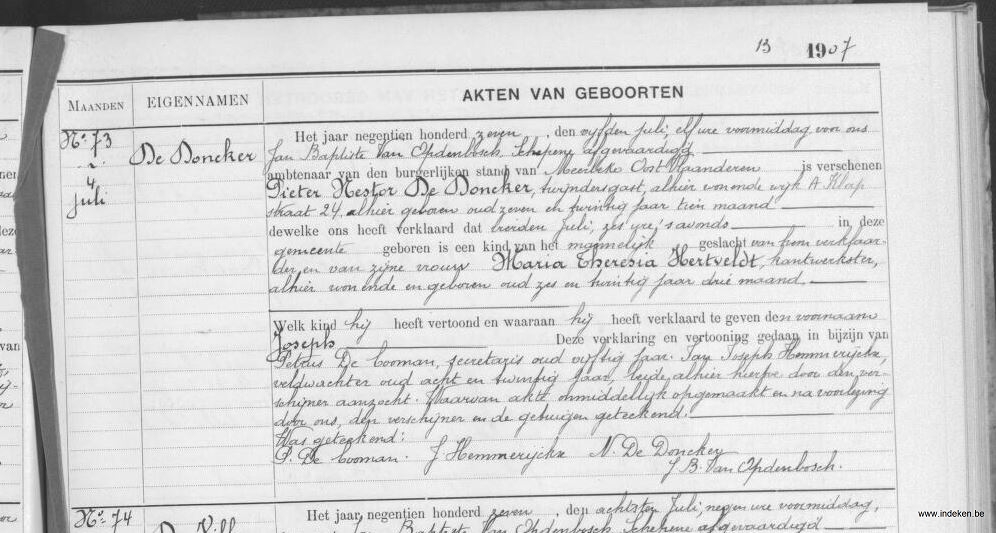 13 1907
MAANDEN EIGENNAMEN AKTEN VAN GEBOORTEN
No. 73
4
Juli
De Doncker
Het jaar negentien honderd zeven, den vijfden juli, elf ure voormiddag voor ons
Jan Baptiste Van Opdenbosch, Schepene afgevaardigd
ambtenaar van den burgerlijken stand van Meerbeke Oost Vlaanderen is verschenen
Pieter Nestor De Doncker, twijndersgast, alhier wonende wijk A Klap
straat 24, alhier geboren oud zeven en twintig jaar tien maand
dewelke ons heeft verklaard dat den juli, zes ure, 's avonds in, deze
gemeente geboren is een kind van het mannelijk geslacht van hem verklaar-
der, en van zijne vrouw Maria Theresia Hertveldt, kantwerkster,
alhier wonende en geboren oud zes en twintig jaar drie maand,
Welk kind hij heeft vertoond en waaraan hij heeft verklaard te geven den voornaam
Joseph Deze verklaring en vertooning gedaan in bijzijn van
Petrus De Cooman, secretaris oud vijftig jaar Jan Joseph Hemmerijckx,
veldwachter oud acht en twintig jaar, beide alhier hiertoe door den ver-
schijner aanzocht. Waarvan akte onmiddelijk opgemaakt en na voorlezing
door ons, den verschijner en de getuigen geteekend.
Was geteekend:
P. De Cooman. J Hemmerijckx N. De Doncker
J B. Van Opdenbosch.
No. 74
Het jaar negentien honderd zeven, den achtsten Juli, negen ure voormiddag,
Baptiste Van Opdenbosch Schepene afgevaardigd
www.indeken.be